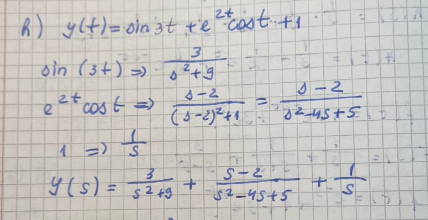 h) y(t) = sin 3t + e^{2t} cos t + 1
sin (3t) => 3/(s²+9)
e^{2t} cos t => (s-2)/((s-2)²+1) = (s-2)/(s²-4s+5)
1 => 1/s
Y(s) = 3/(s²+9) + (s-2)/(s²-4s+5) + 1/s